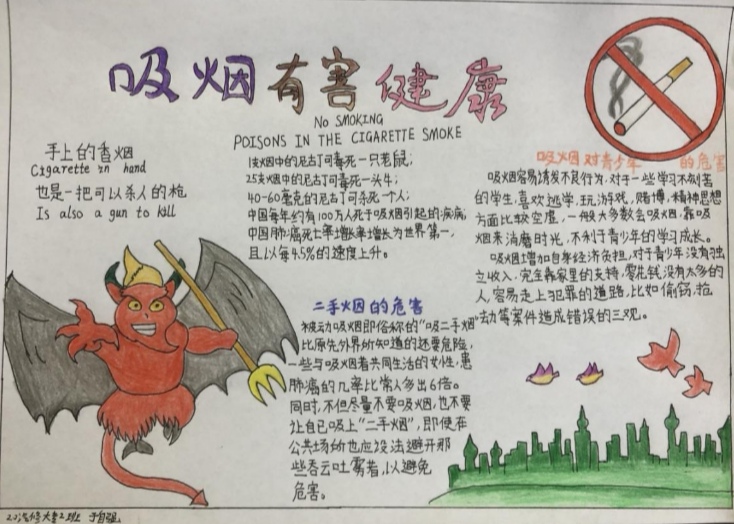 吸烟有害健康
No SMOKING
POISONS IN THE CIGARETTE SMOKE
手上的香烟
Cigarette in hand
也是一把可以杀人的枪
Is also a gun to kill
1支烟中的尼古丁可毒死一只老鼠;
25支烟中的尼古丁可毒死一头牛;
40-60毫克的尼古丁可杀死一个人;
中国每年约有100万人死于吸烟引起的疾病;
中国肺癌死亡率增长率增长为世界第一,
且以每4.5%的速度上升。
吸烟对青少年 的危害
吸烟容易诱发不良行为,对于一些学习不刻苦
的学生,喜欢逃学,玩游戏,赌博,精神思想
方面比较空虚,一般大多数会吸烟,靠吸
烟来消磨时光,不利于青少年的学习成长。
吸烟增加自身经济负担,对于青少年没有独
立收入,完全靠家里的支持,零花钱没有太多的
人,容易走上犯罪的道路,比如偷窃,抢
劫等案件造成错误的三观。
二手烟的危害
被动吸烟即俗称的“吸二手烟”
比原先外界所知道的还要危险,
一些与吸烟者共同生活的女性,患
肺癌的几率比常人多出6倍。
同时,不但尽量不要吸烟,也不要
让自己吸上“二手烟”,即使在
公共场所也应设法避开那
些吞云吐雾者,以避免
危害。
汽修大专2班 于自强